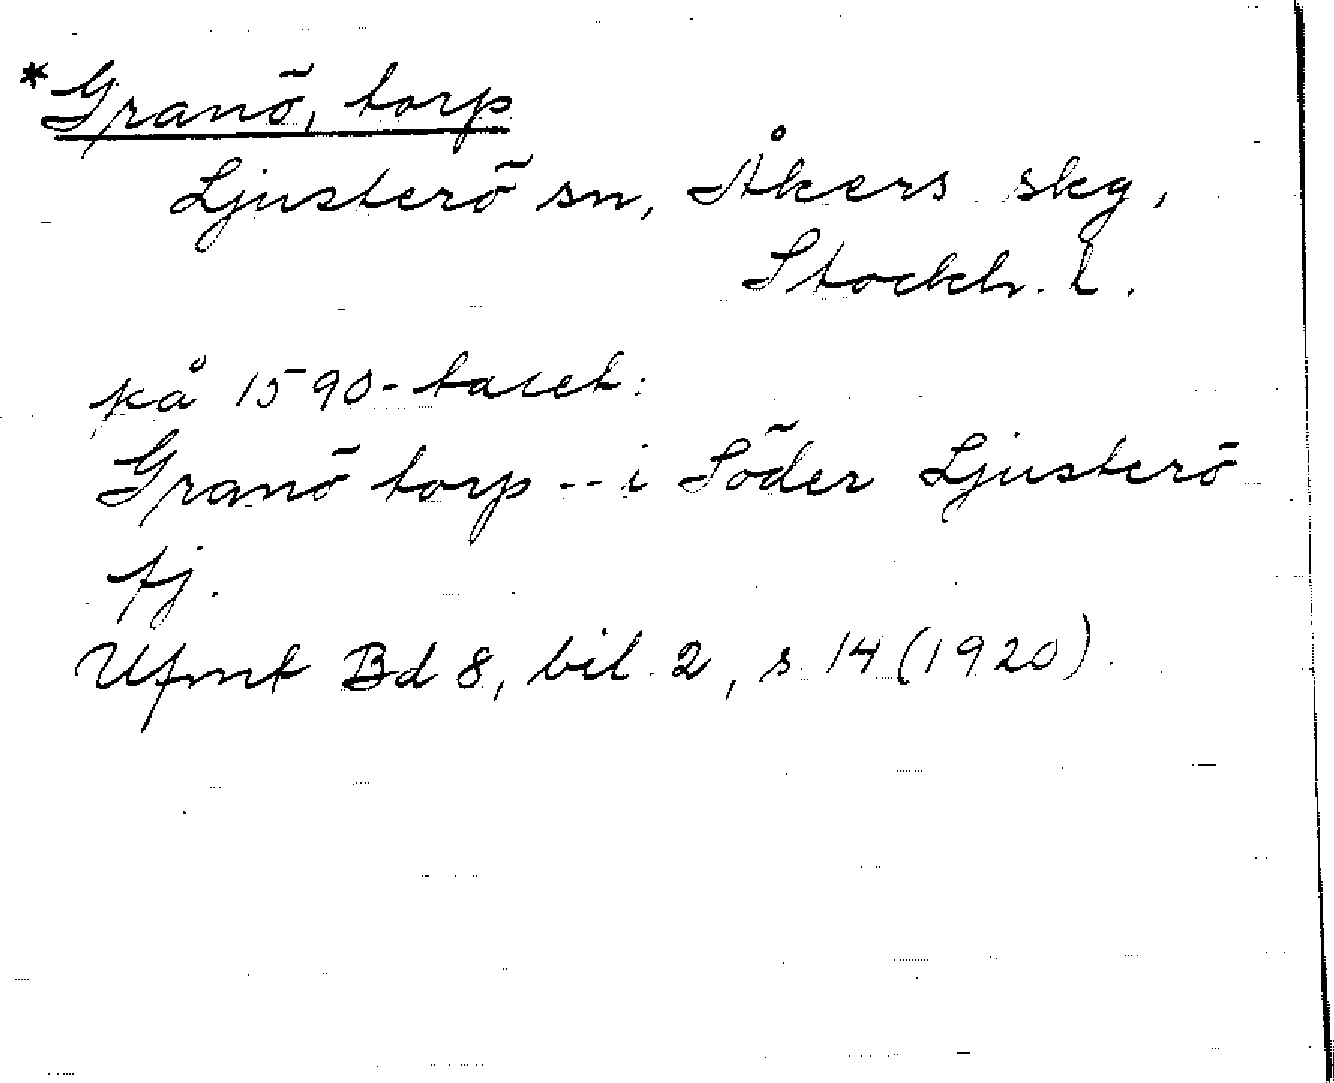 *Granö, torp
Ljusterö sn, Åkers skg,
Stockh. l.
på 1590-talet:
Granö torp -- i Söder Ljusterö
fj.
Ufmt Bd 8, bil. 2, s. 14 (1920).